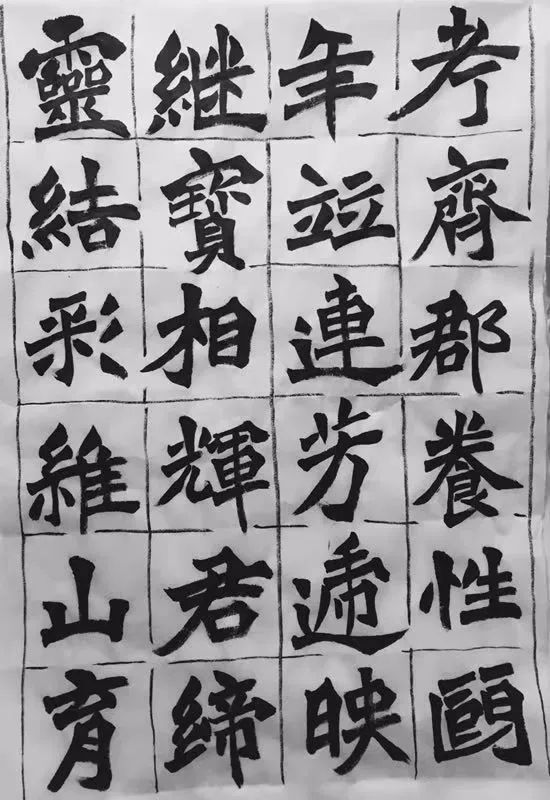 考齊郡養性頤
年竝連芳遞映
継寶相輝君締
靈結彩維山育